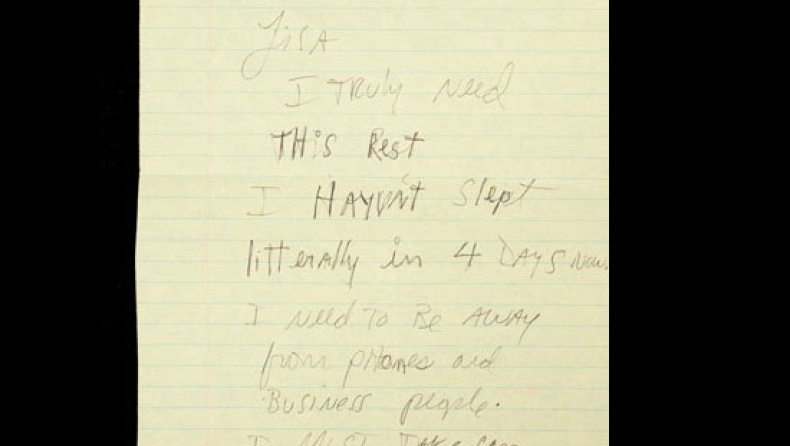 LISA
I TRULY Need
THis Rest
I HAVVNt Slept
litterally in 4 DAYS now.
I need To Be AWAY
from pHones and
Business people.
I MUST TAKE care